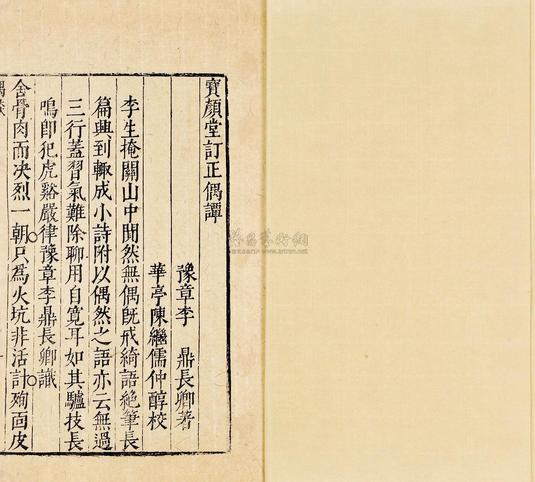 寶顏堂訂正偶譚
豫章李 鼎長卿著
華亭陳繼儒仲醇校
李生掩關山中閴然無偶旣戒綺語絶筆長
篇興到輒成小詩附以偶然之語亦云無過
三行蓋習氣難除聊用自寬耳如其驢技長
鳴卽犯虎谿嚴律豫章李鼎長卿識
舍骨肉而决烈一朝只爲火坑非活計殉面皮